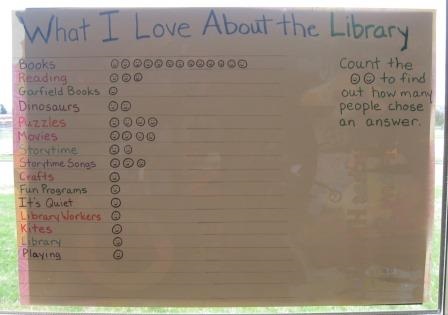 What I Love About the Library
Books
Reading
Garfield Books
Dinosaurs
Puzzles
Movies
Storytime
Storytime Songs
Crafts
Fun Programs
It's Quiet
Library Workers
Kites
Library
Playing
Count the
to find
out how many
people chose
an answer.